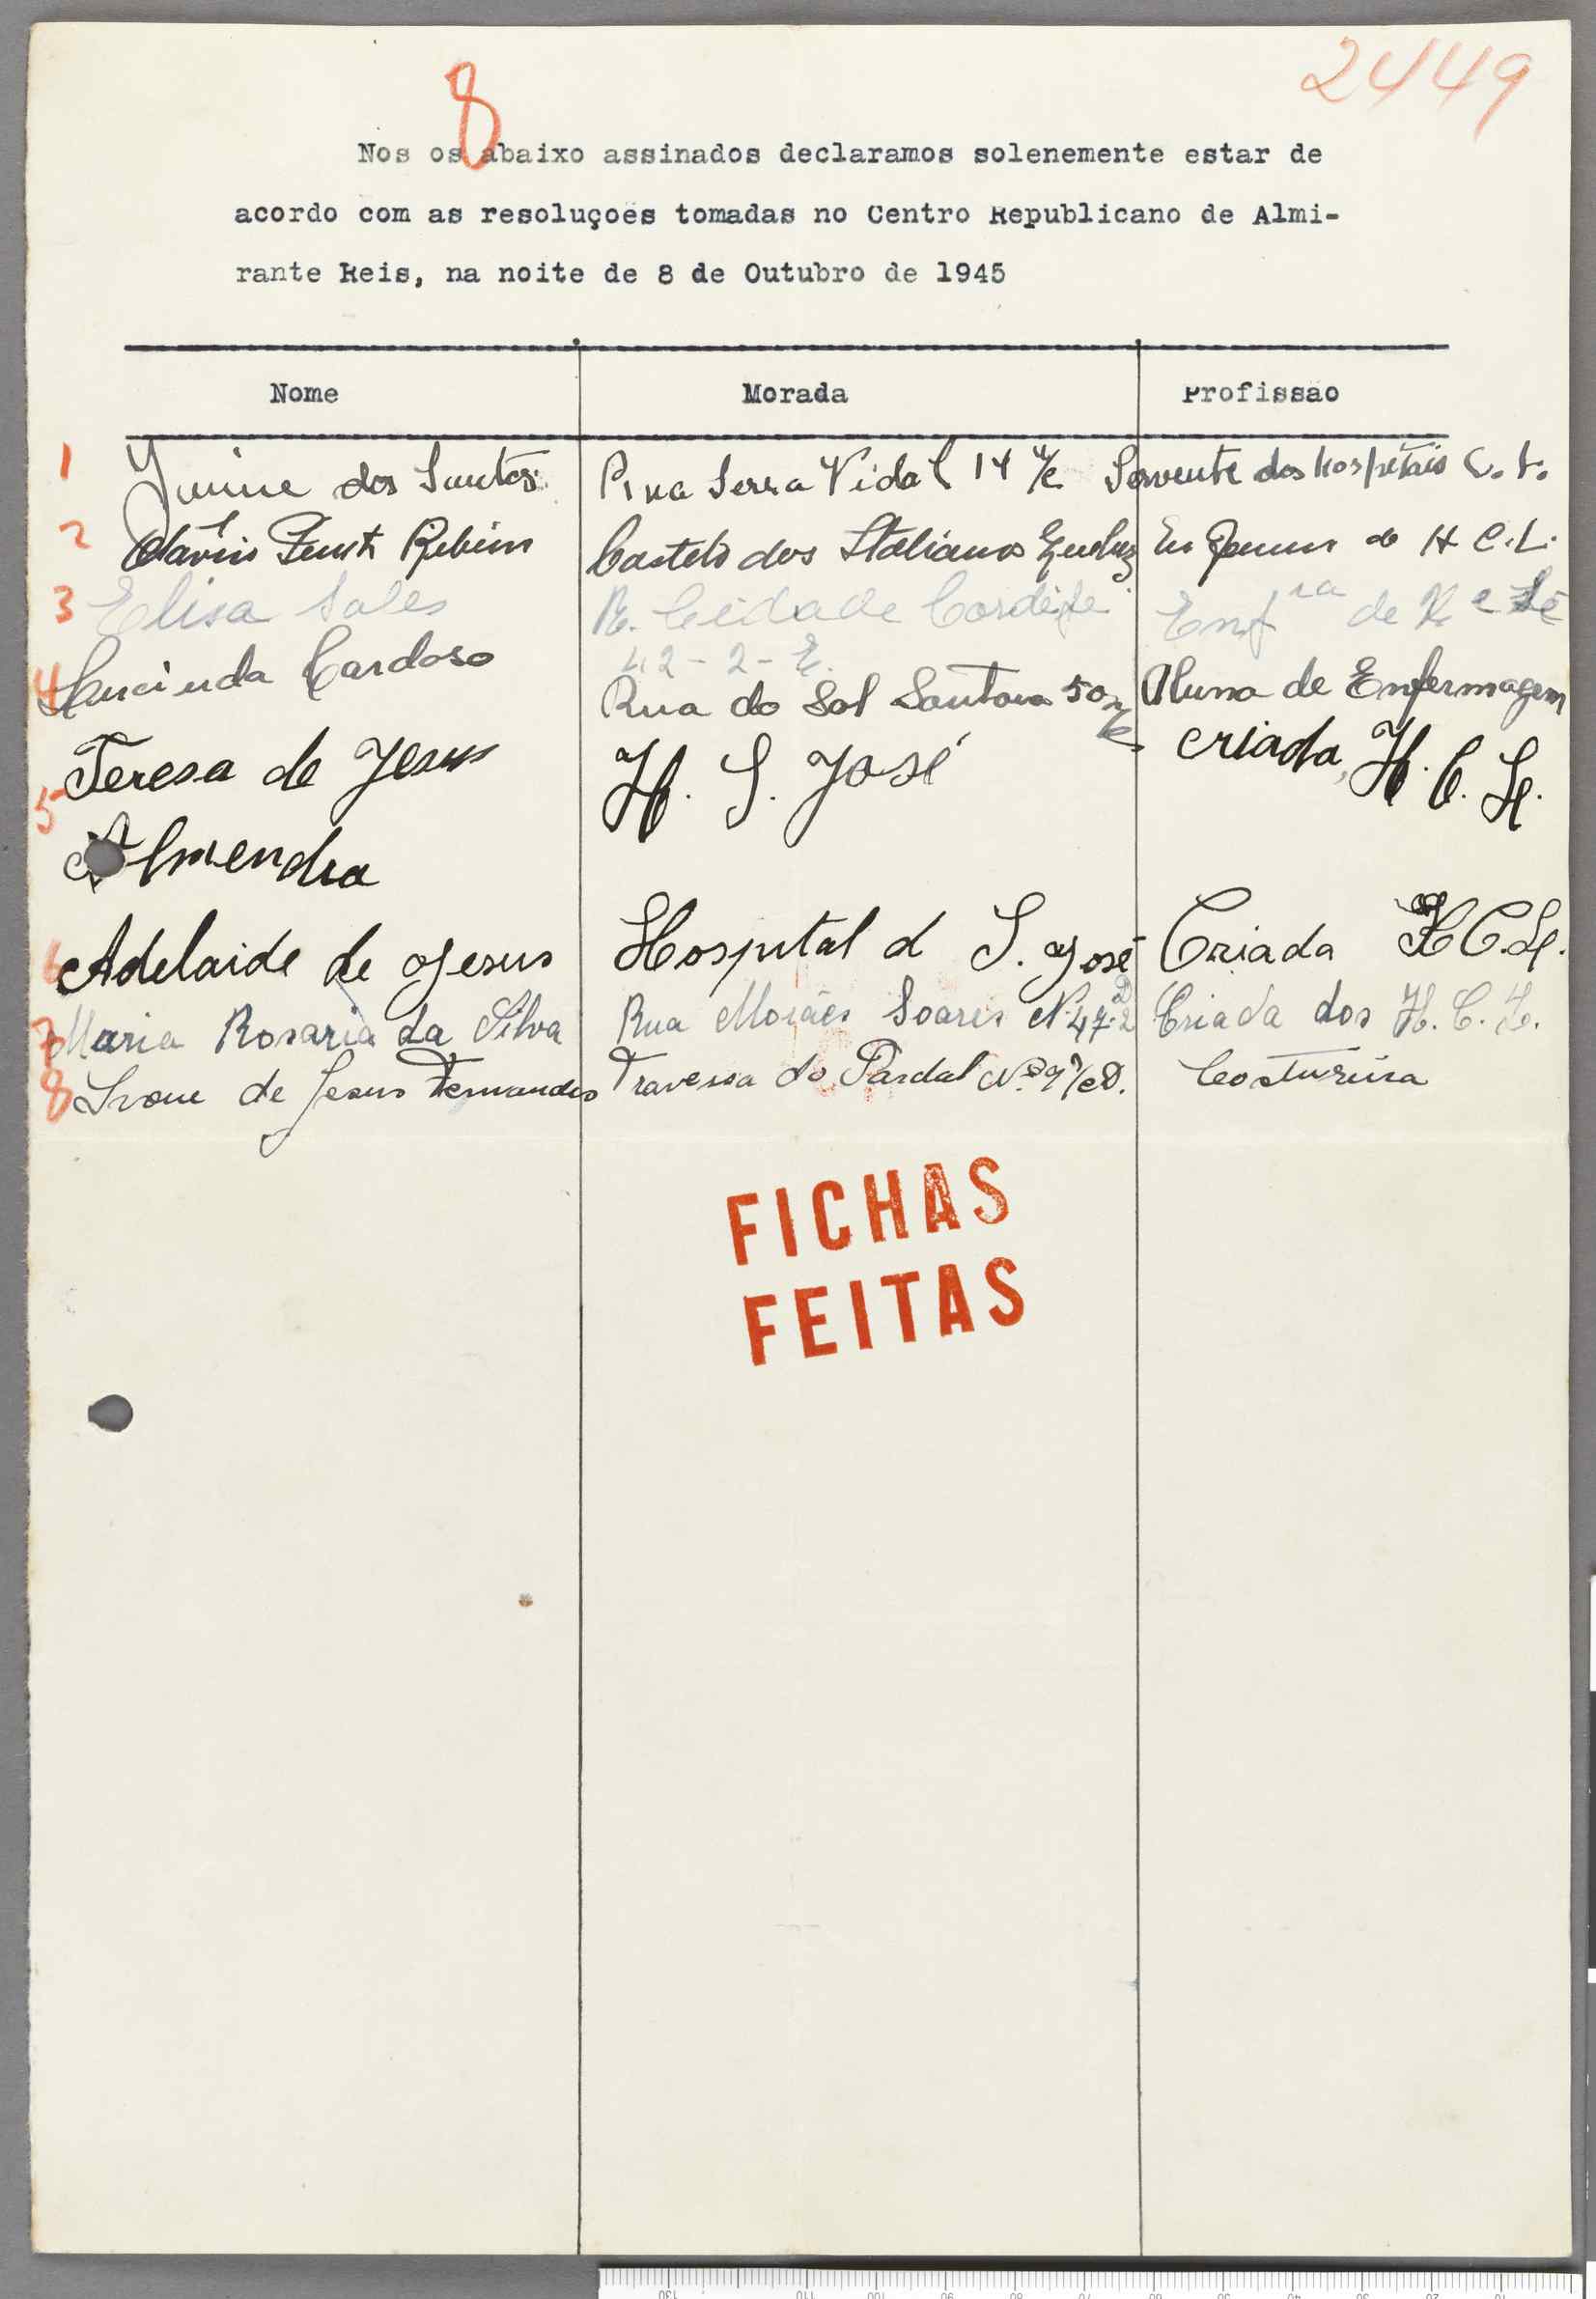 8
2449
Nos os abaixo assinados declaramos solenemente estar de
acordo com as resoluções tomadas no Centro Republicano de Almi-
rante Reis, na noite de 8 de Outubro de 1945
Nome Morada Profissão
1 dos Santos Serra Vidal 14 r/c Servente dos hospitais C. L.
2 Ribeiro Castelo dos Italianos H C. L.
3 Elisa Sales R. Cidade Cardife Enfra de
42-2-E.
4 Lucinda Cardoso Rua do Sol Santana 50 r/c Aluna de Enfermagem
5 Teresa de Jesus H. S. José criada, H. C. L.
Almendra
6 Adelaide de Jesus Hospital d S. José Criada H C. L.
7 Maria Rosaria da Silva Rua Moráes Soares Nº 47-2 D Criada dos H. C. L.
8 Ivone de Jesus Fernandes Travessa do Pardal Nº 9 r/c D. Costureira
FICHAS
FEITAS